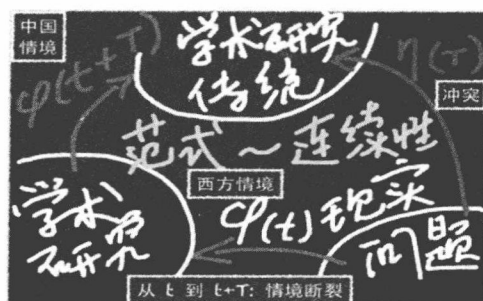 中国
情境
学术研究
传统
φ(t+T)
η(T)
冲突
范式～连续性
西方情境
学术
研究
φ(t)现实
问题
从 t 到 t+T: 情境断裂